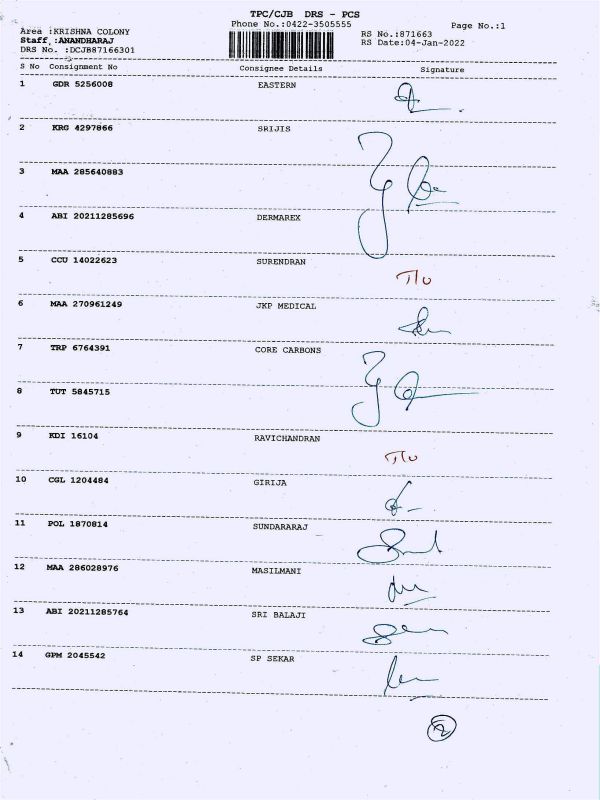 TPC/CJB DRS - PCS
Phone No.:0422-3505555
Page No.:1
Area :KRISHNA COLONY
RS No.:871663
Staff :ANANDHARAJ
RS Date:04-Jan-2022
DRS No. :DCJB87166301
S No Consignment No Consignee Details Signature
1 GDR 5256008 EASTERN
2 KRG 4297866 SRIJIS
3 MAA 285640883
4 ABI 20211285696 DERMAREX
5 CCU 14022623 SURENDRAN
6 MAA 270961249 JKP MEDICAL
7 TRP 6764391 CORE CARBONS
8 TUT 5845715
9 KDI 16104 RAVICHANDRAN
10 CGL 1204484 GIRIJA
11 POL 1870814 SUNDARARAJ
12 MAA 286028976 MASILMANI
13 ABI 20211285764 SRI BALAJI
14 GPM 2045542 SP SEKAR